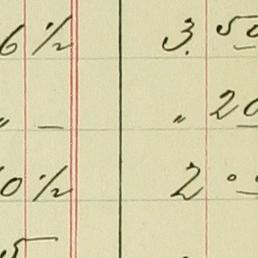 6 ½ 3. 50
" — " 20
0 ½ 2 00
5